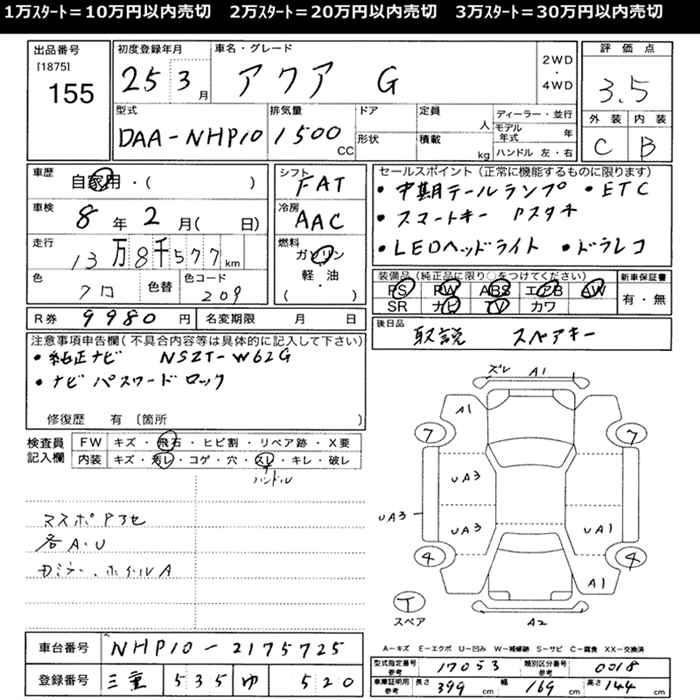 1万ｽﾀｰﾄ＝10万円以内売切　2万ｽﾀｰﾄ＝20万円以内売切　3万ｽﾀｰﾄ＝30万円以内売切
出品番号
[1875]
155
初度登録年月
25 3月
車名・グレード
アクア G
2WD
・
4WD
評価点
3.5
外装 内装
C B
型式
DAA-NHP10
排気量
1500
CC
ドア
形状
定員
人
積載
kg
ディーラー・並行
モデル年式 年
ハンドル 左・右
車歴
自家用・( )
車検
8年 2月( 日)
走行
13万8千577km
色
クロ
色替
色コード
209
シフト
FAT
冷房
AAC
燃料
ガソリン
軽・油
( )
セールスポイント(正常に機能するものに限ります)
・中期テールランプ ・ETC
・スマートキー Pスタキ
・LEDヘッドライト ・ドラレコ
装備品(純正品に限り○をつけてください)
PS PW ABS エアB AW
SR ナビ TV カワ
新車保証書
有・無
R券 9980円
名変期限 月 日
後日品
取説 スペアキー
注意事項申告欄(不具合内容等は具体的に記入して下さい)
・純正ナビ NSZT-W62G
・ナビ パスワードロック
修復歴 有 〔箇所 〕
検査員
記入欄
FW キズ・飛石・ヒビ割・リペア跡・X要
内装 キズ・汚レ・コゲ・穴・スレ・キレ・破レ
ハンドル
各A・U
ズレ A1
A1
7 7
UA3
UA3 UA3 UA1
4 4
A1
T
スペア
A2
車台番号 NHP10-2175725
登録番号 三重 535 ゆ 520
A－キズ E－エクボ U－凹み W－補修跡 S－サビ C－腐食 XX－交換済
型式指定番号
参考
17053
類別区分番号
参考
0018
車庫証明用
参考
長さ 399cm 幅 169cm 高さ 144cm